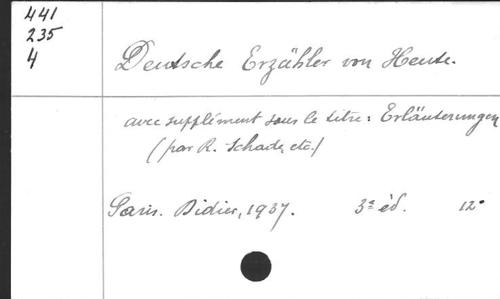 441
235
4
Deutsche Erzähler von Heute.
avec supplément sous le titre: Erläuterungen
(par R. Schade, etc.)
Paris. Didier, 1937. 3e éd. 12°